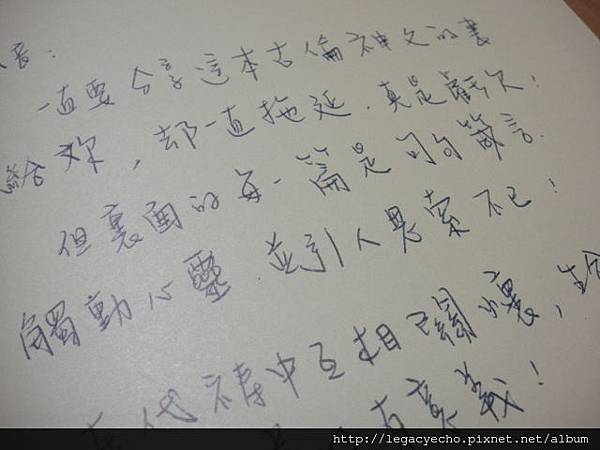 音：
一直要分享這本古倫神父的書
給妳，却一直拖延，真是歉欠！
但裏面的每一篇是句句箴言，
觸動心靈，並引人思索不已！
在代禱中互相
有意義！
http://legacyecho.pixnet.net/album